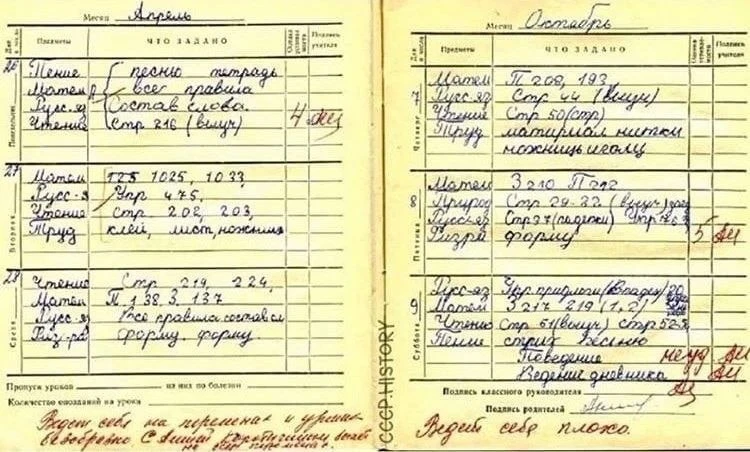 Месяц Апрель
День и число Предметы ЧТО ЗАДАНО Оценка успеваемости Подпись учителя
26 Понедельник
Пение песню тетрадь
Матем все правила
Русс-яз Состав слова.
Чтение Стр 216 (выуч) 4
27 Вторник
Матем 1025, 1033,
Русс-я Упр 475,
Чтение Стр. 202, 203,
Труд клей, лист, ножниц
28 Среда
Чтение Стр 219, 224,
Матем П 138 3, 137
Русс-яз Все правила состав сл
Физ-ра форму. форму.
Пропуск уроков из них по болезни
Количество опозданий на уроки
Ведет себя на переменах и уроках
безобразно С
на переменах.
СССР.HISTORY
Месяц Октябрь
День и число Предметы ЧТО ЗАДАНО Оценка успеваемости Подпись учителя
7 Четверг
Матем П 208, 193,
Русс-яз Стр 44 (выуч)
Чтение Стр 50 (стр)
Труд матириал нитки
ножницы иголц
8 Пятница
Матем З 210 П 212
Природ Стр 29-32 (выуч)
Русс-яз Стр 37 Упр
Физра форму 5
9 Суббота
Русс-яз Упр
Матем З 217 219 (1, 2)
Чтение Стр 51 (выуч) стр 52
Пение стрих Песню
Поведение неуд.
Ведение дневника
Подпись классного руководителя
Подпись родителей
Ведет себя плохо.